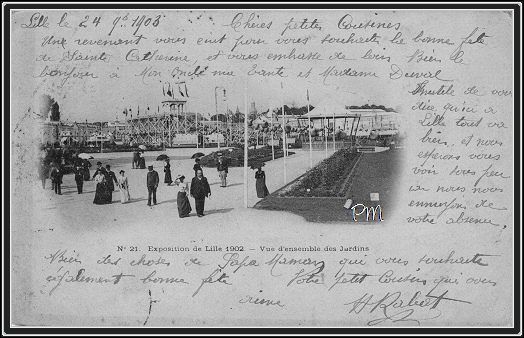 Lille le 24 9bre 1903 Chères petites Cousines
Une revenant vous vient pour vous souhaite la bonne fête
de Sainte Catherine, et vous embrasse de loin Bien le
bonjour à Mon Oncle ma Tante et Madame Duval
Inutile de vous
dire qu'ici à
Lille tout va
bien, et nous
espérons vous
voir sous peu
car nous nous
ennuyons de
votre absence.
PM
N° 21. Exposition de Lille 1902 — Vue d'ensemble des Jardins
Bien des choses de Papa Maman qui vous souhaite
également bonne fête Votre petit Cousin qui vous
aime H Rabat